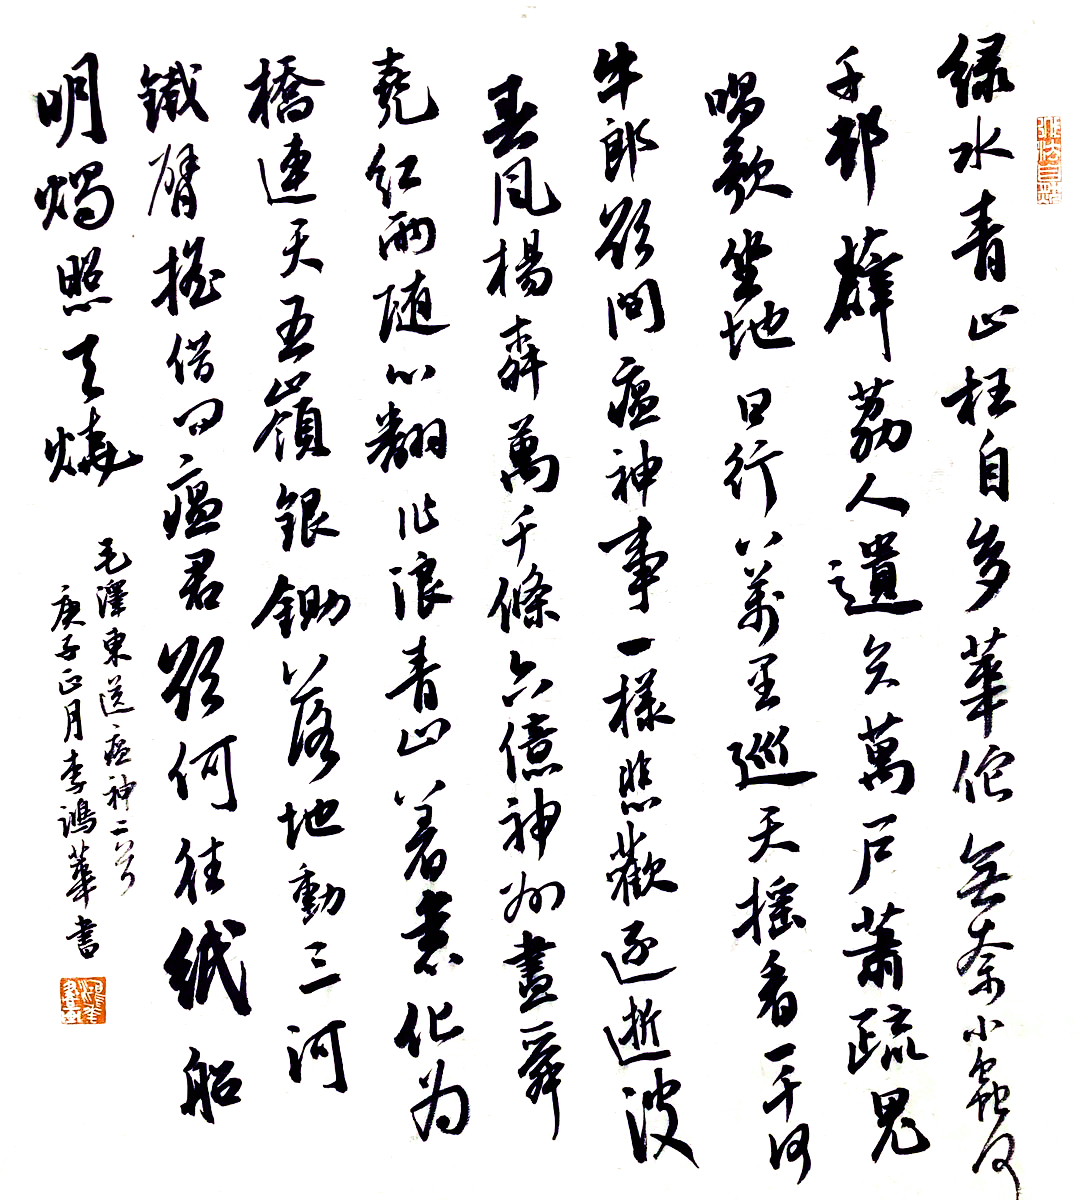 绿水青山枉自多華佗無奈小蟲何
千邨薜荔人遺矢萬戶蕭疏鬼
唱歌坐地日行八萬里巡天搖看一千河
牛郎欲問瘟神事一樣悲歡逐逝波
春风楊栁萬千條六億神州盡舜
堯红雨随心翻作浪青山着意化为
橋連天五嶺銀鋤落地動三河
鐵臂搖借问瘟君欲何往纸船
明燭照天燒
毛澤東送瘟神二首
庚子正月李鴻華書